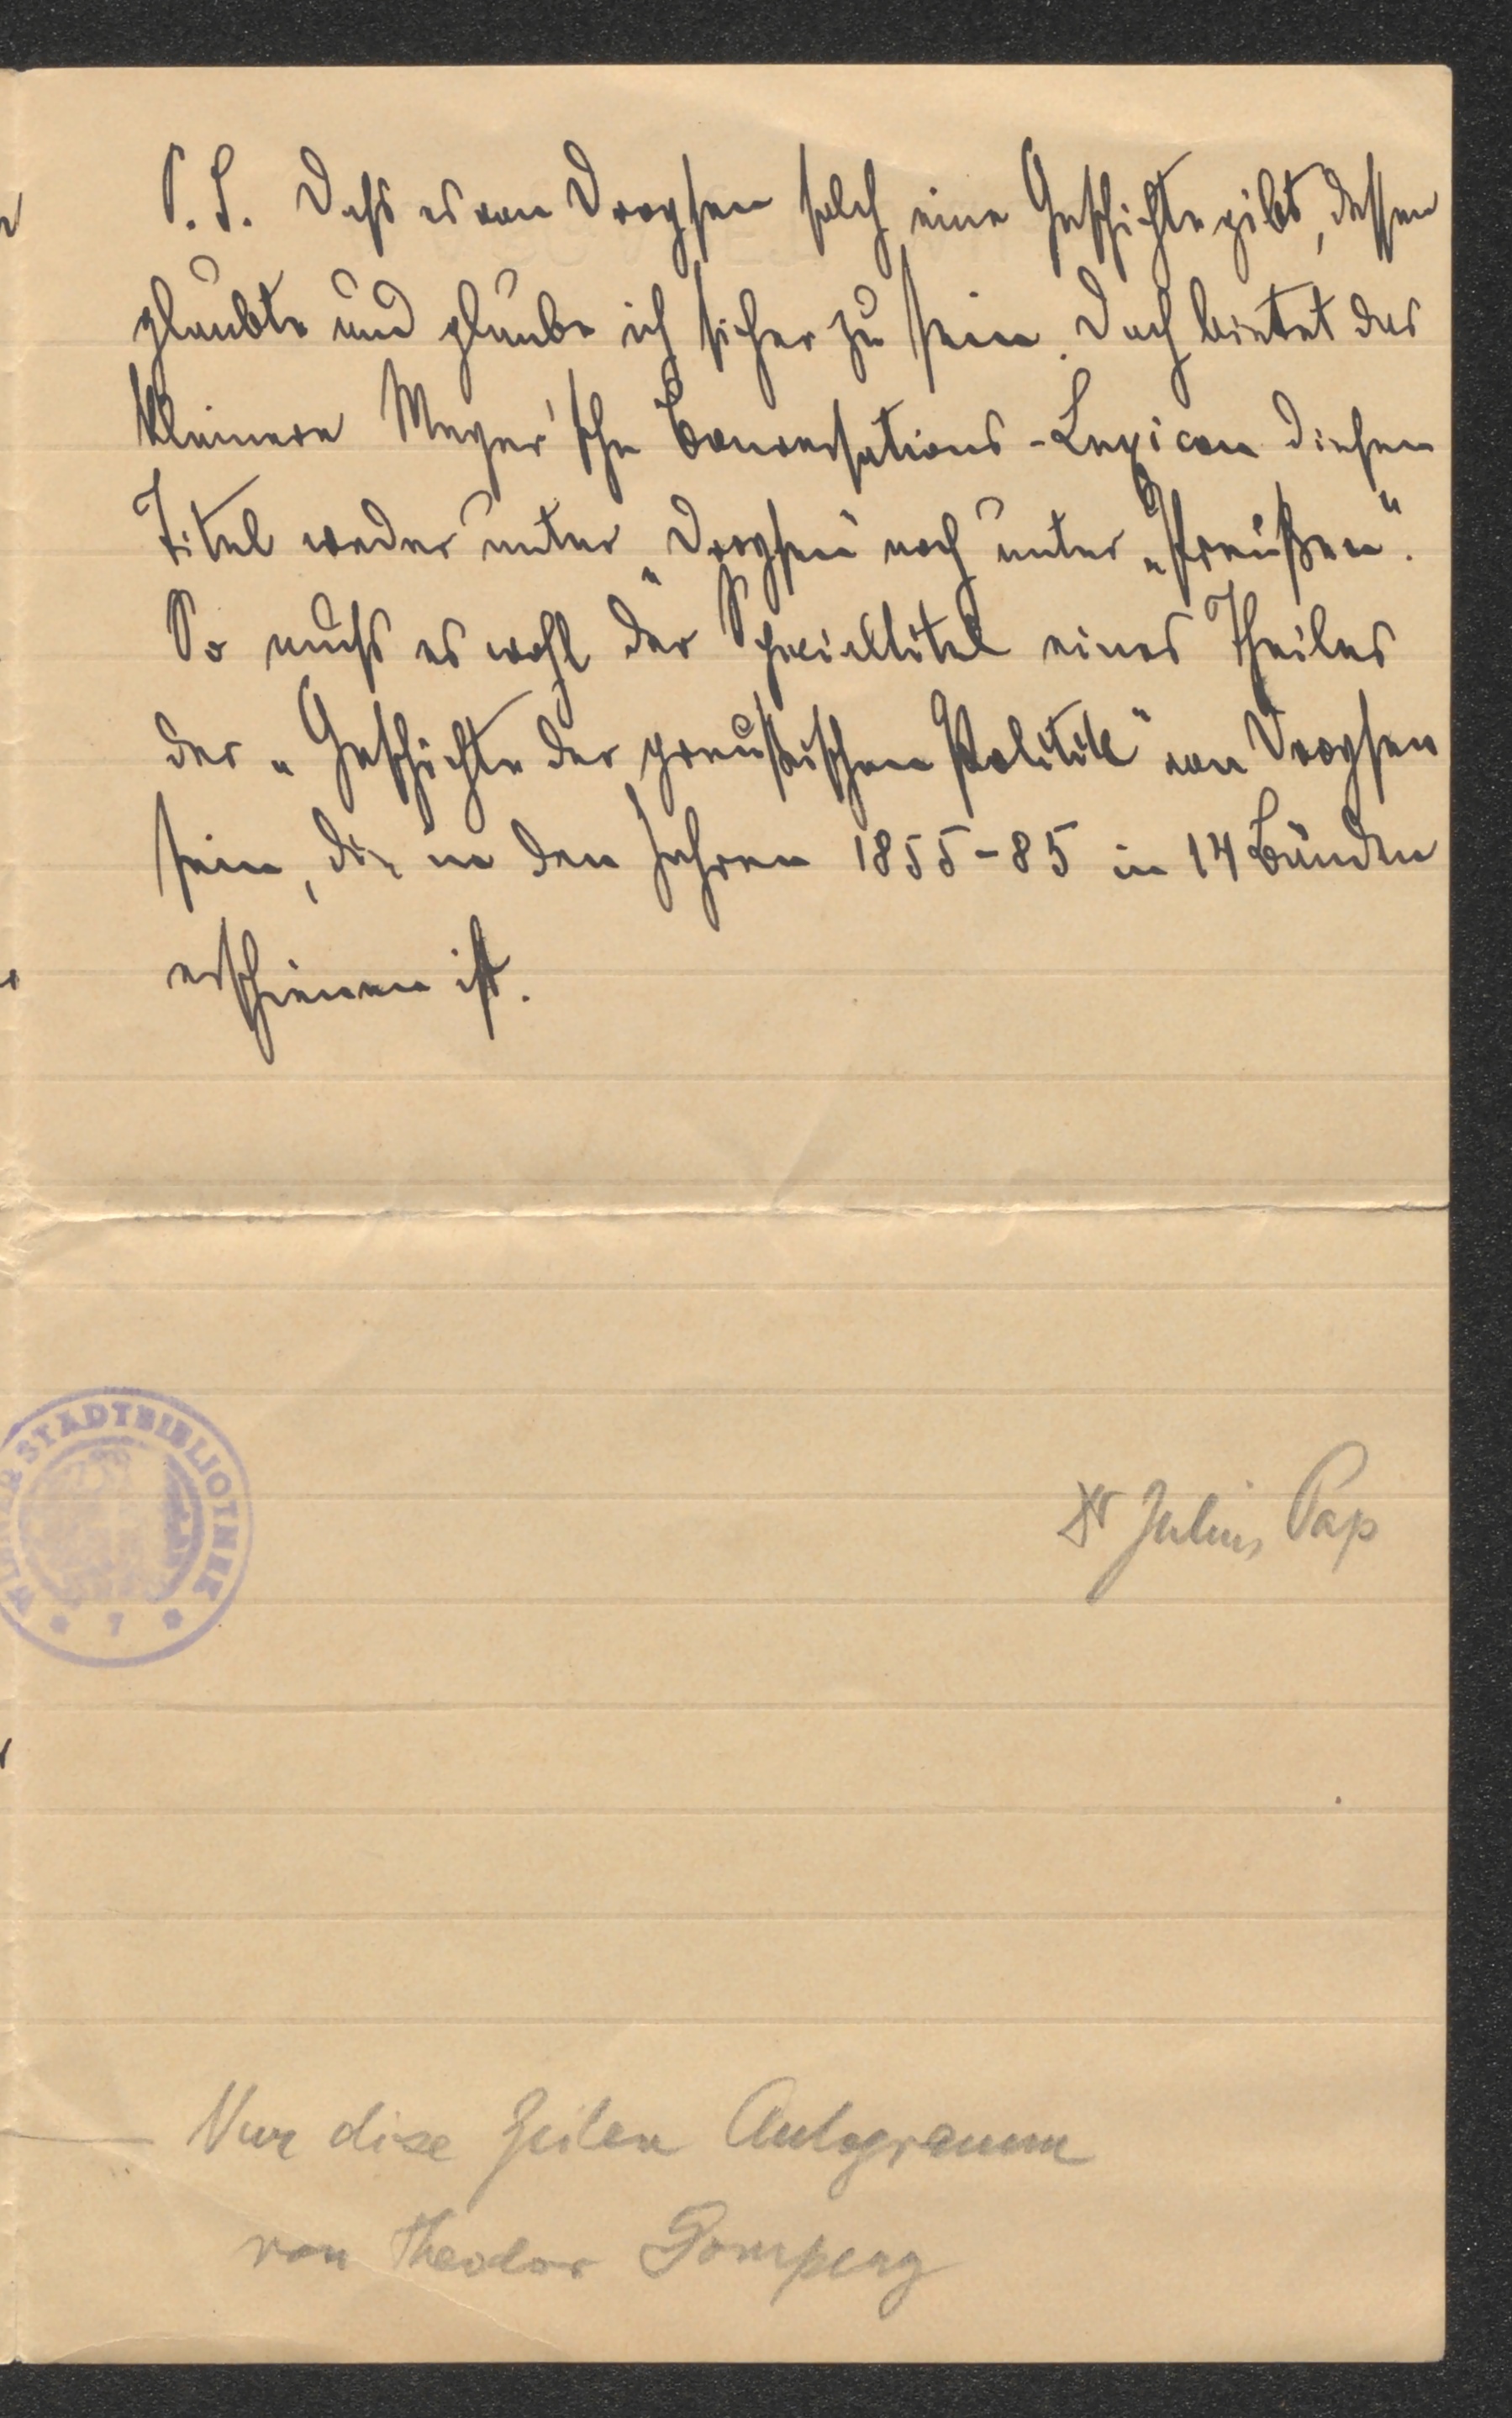 P. S. Dass es von Droysen solch eine Geschichte gibt, dessen
glaubte und glaube ich sicher zu sein. Doch bietet das
kleinere Meyer'sche Conversations-Lexicon diesen
Titel weder unter „Droysen“ noch unter „Preußen“.
So muss es wohl der Specialtitel eines Theiles
der „Geschichte der preußischen Politik“ von Droysen
sein, die in den Jahren 1855-85 in 14 Bänden
erschienen ist.
WIENER STADTBIBLIOTHEK
* 7 *
Dr Julius Pap
Nur dise Zeilen Autogramm
von Theodor Gomperz